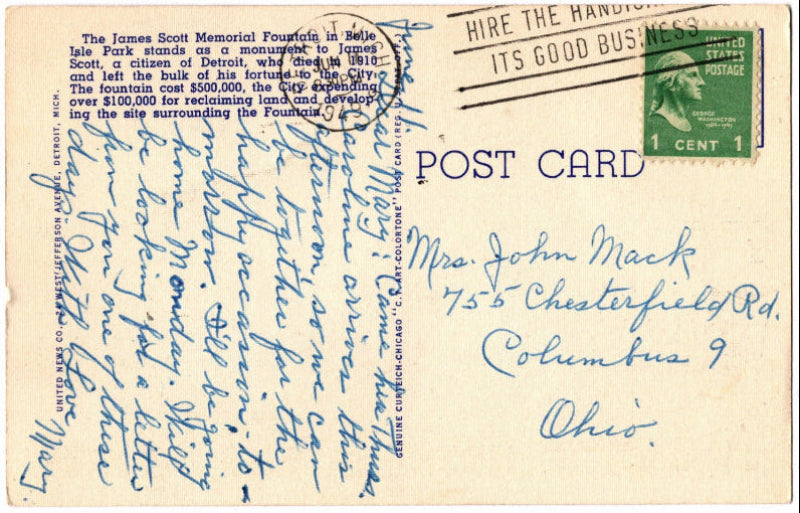 The James Scott Memorial Fountain in Belle
Isle Park stands as a monument to James
Scott, a citizen of Detroit, who died 1910
and left the bulk of his fortune to the City.
The fountain cost $500,000, the City expending
over $100,000 for reclaiming land and develop-
ing the site surrounding the Fountain.
UNITED NEWS CO., WEST JEFFERSON AVENUE, DETROIT, MICH.
June 11
Dear Mary: Came here Thurs.
Caroline arrives this
afternoon, so we can
be together for the
happy occasion to-
morrow. I'll be going
home Monday. Will
be looking for a letter
from you one of these
days. With Love
Mary.
GENUINE CURTEICH-CHICAGO "C.T. ART-COLORTONE" POST CARD (REG. U.S.
DETROIT, MICH.
JUN
PM
1949
HIRE THE
ITS GOOD BUSINESS
UNITED
STATES
POSTAGE
GEORGE
WASHINGTON
1 CENT 1
POST CARD
Mrs. John Mack
755 Chesterfield Rd.
Columbus 9
Ohio.